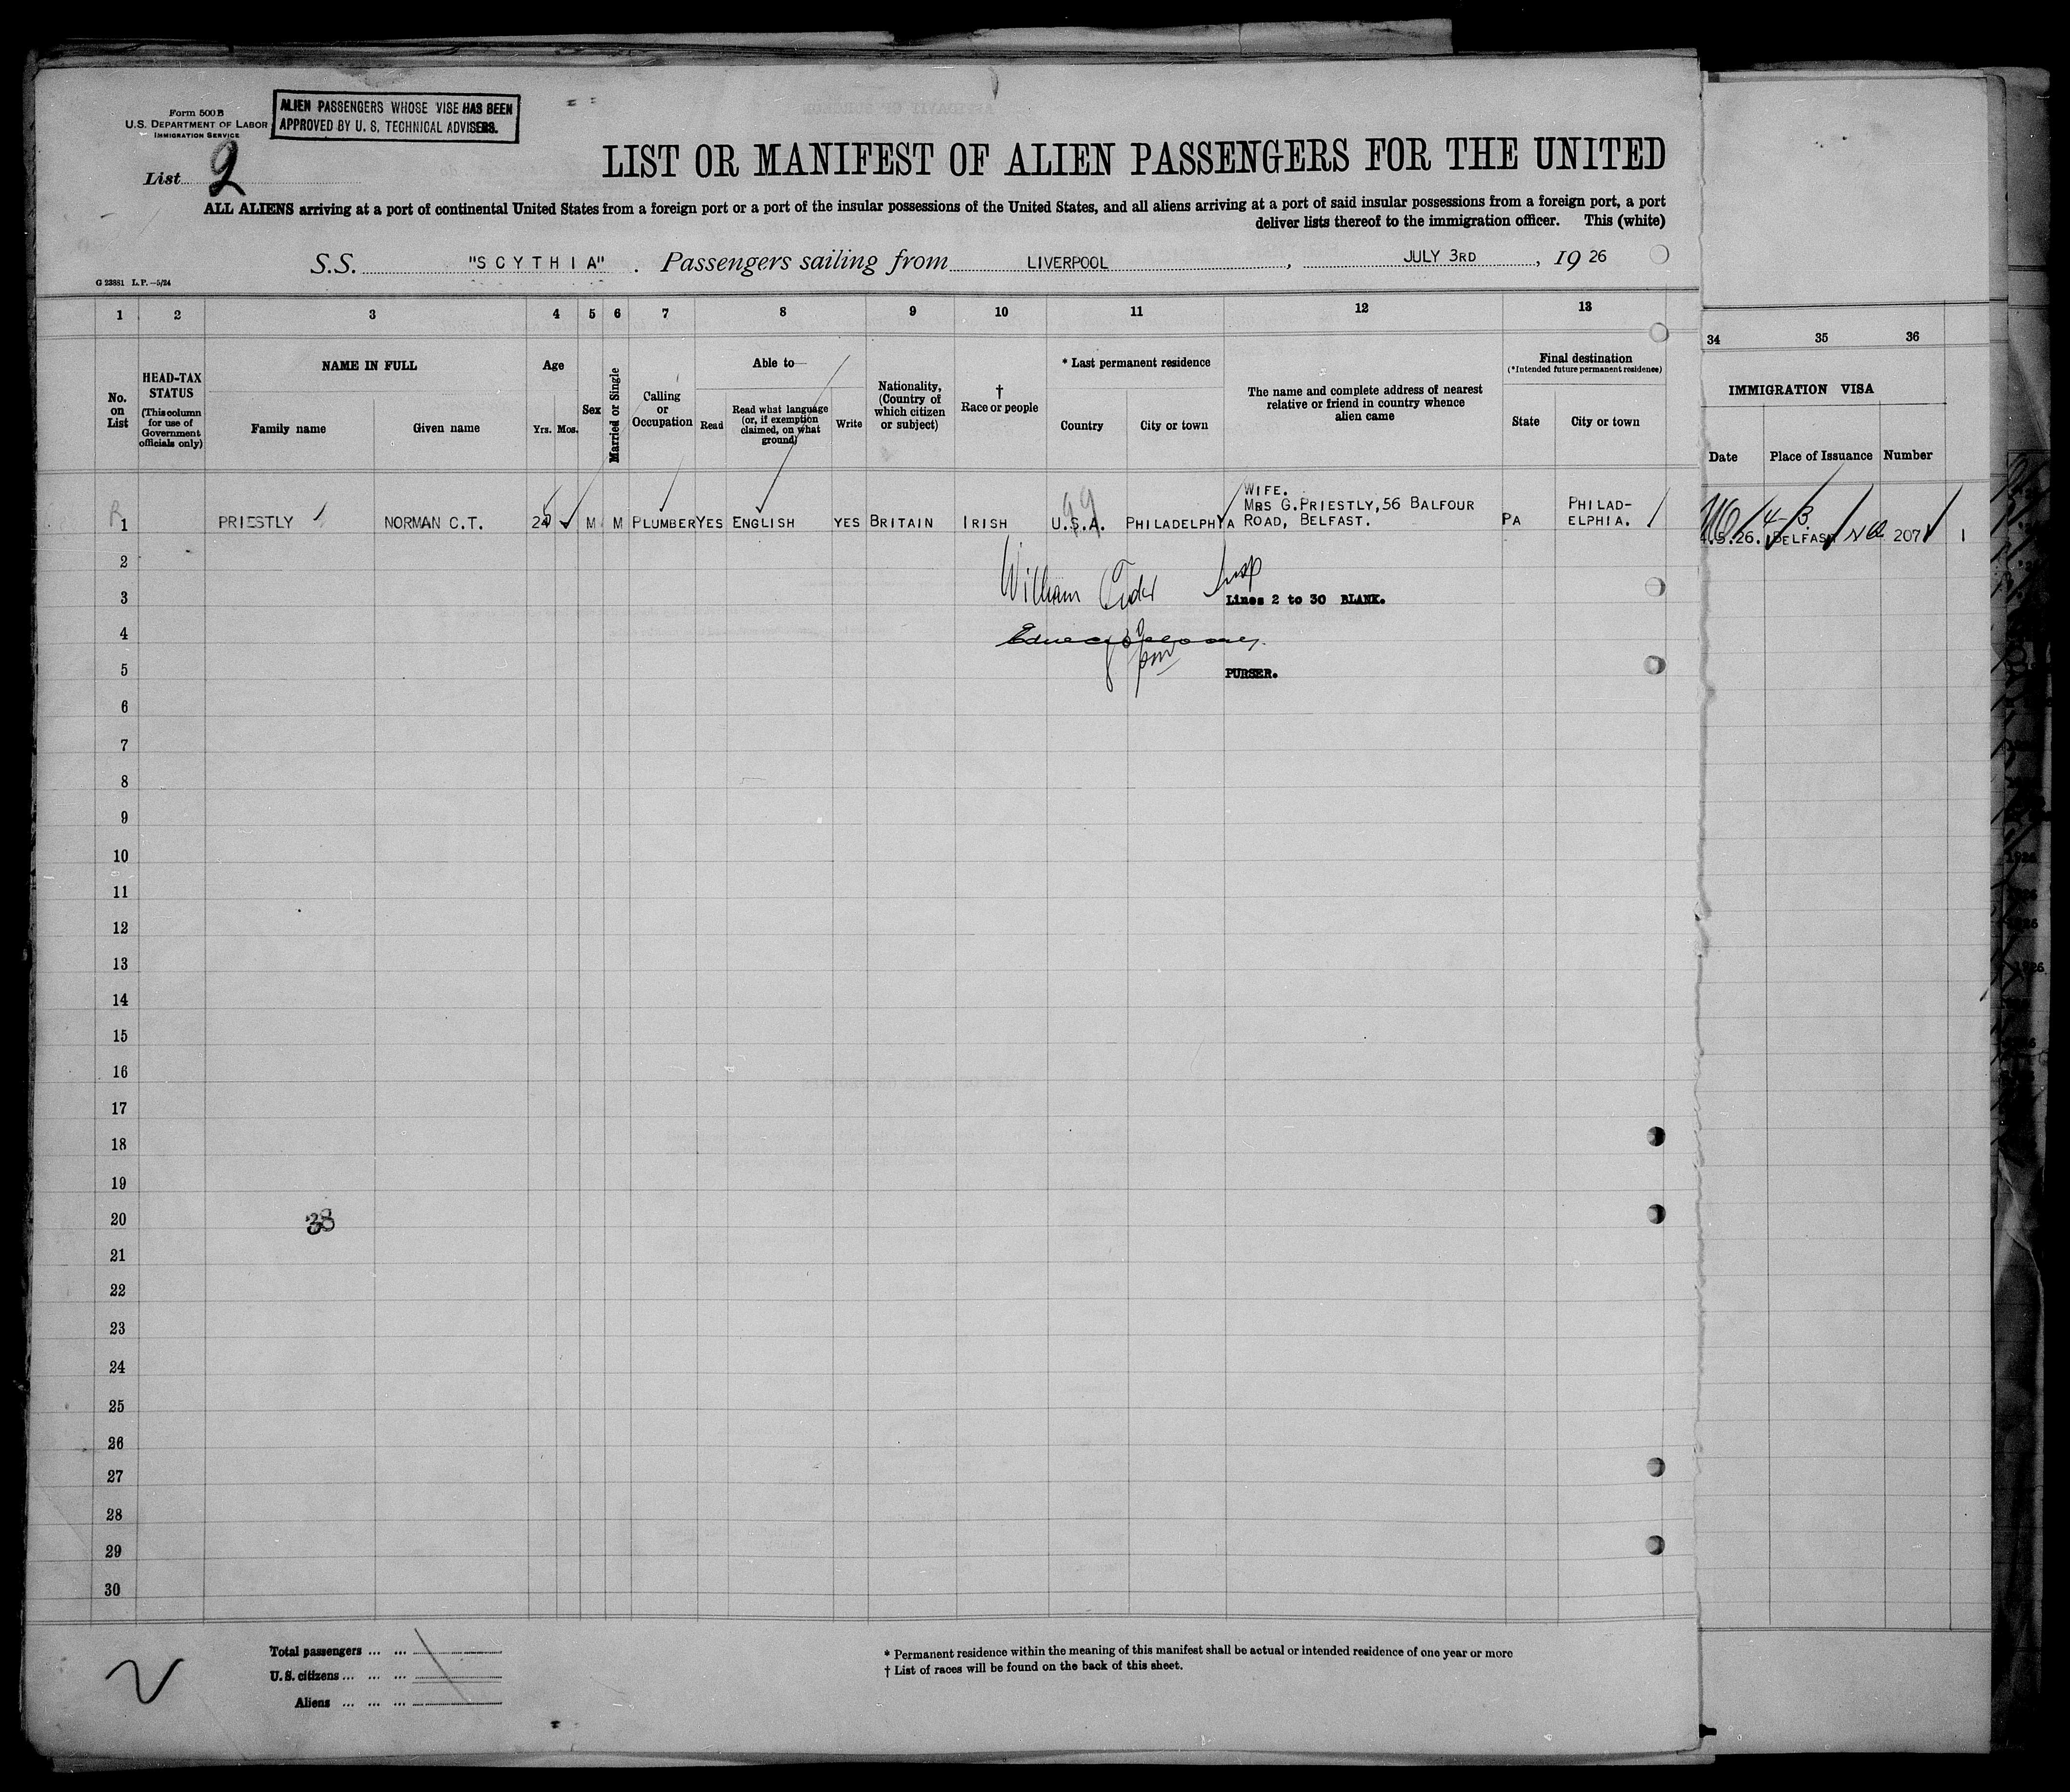 Form 500 B
U.S. DEPARTMENT OF LABOR
IMMIGRATION SERVICE
ALIEN PASSENGERS WHOSE VISE HAS BEEN
APPROVED BY U. S. TECHNICAL ADVISERS.
List 2
LIST OR MANIFEST OF ALIEN PASSENGERS FOR THE UNITED
ALL ALIENS arriving at a port of continental United States from a foreign port or a port of the insular possessions of the United States, and all aliens arriving at a port of said insular possessions from a foreign port, a port
deliver lists thereof to the immigration officer. This (white)
S.S. "SCYTHIA" . Passengers sailing from LIVERPOOL , JULY 3RD , 19 26
G 23881 L.P.—5/24
1 2 3 4 5 6 7 8 9 10 11 12 13
34 35 36
No. on List
HEAD-TAX STATUS
(This column for use of Government officials only)
NAME IN FULL
Family name Given name
Age
Yrs. Mos.
Sex
Married or Single
Calling or Occupation
Able to
Read
Read what language (or, if exemption claimed, on what ground)
Write
Nationality, (Country of which citizen or subject)
† Race or people
* Last permanent residence
Country City or town
The name and complete address of nearest relative or friend in country whence alien came
Final destination
(*Intended future permanent residence)
State City or town
IMMIGRATION VISA
Date Place of Issuance Number
WIFE.
1 PRIESTLY NORMAN C.T. M M PLUMBER YES ENGLISH YES BRITAIN IRISH U.S.A. PHILADELPHIA MRS G.PRIESTLY, 56 BALFOUR ROAD, BELFAST. PA PHILAD-ELPHIA. BELFAST 207 1
2
William Insp
3 Lines 2 to 30 BLANK.
4
5 PURSER.
6
7
8
9
10
11
12
13
14
15
16
17
18
19
20 38
21
22
23
24
25
26
27
28
29
30
Total passengers ... ...
U.S. citizens ... ... ...
Aliens ... ... ...
* Permanent residence within the meaning of this manifest shall be actual or intended residence of one year or more
† List of races will be found on the back of this sheet.